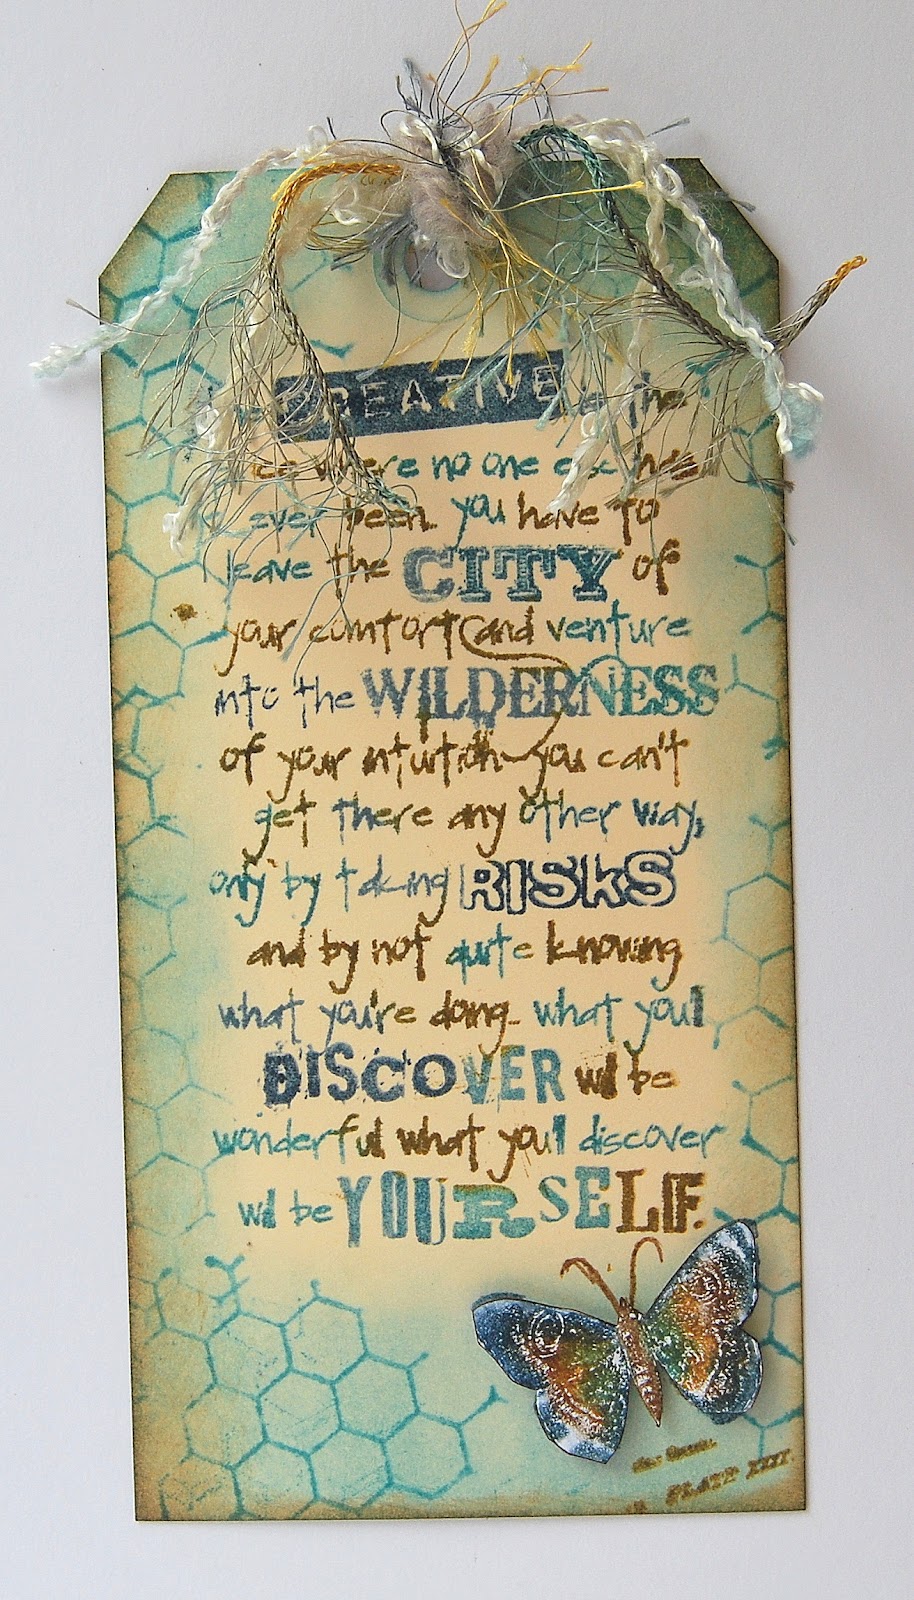 CREATIVE the
where no one else has
ever been. you have to
leave the CITY of
your comfort and venture
into the WILDERNESS
of your intuition you can't
get there any other way,
only by taking RISKS
and by not quite knowing
what you're doing. what you'll
DISCOVER will be
wonderful what you'll discover
will be YOURSELF.
PLATE XIIII